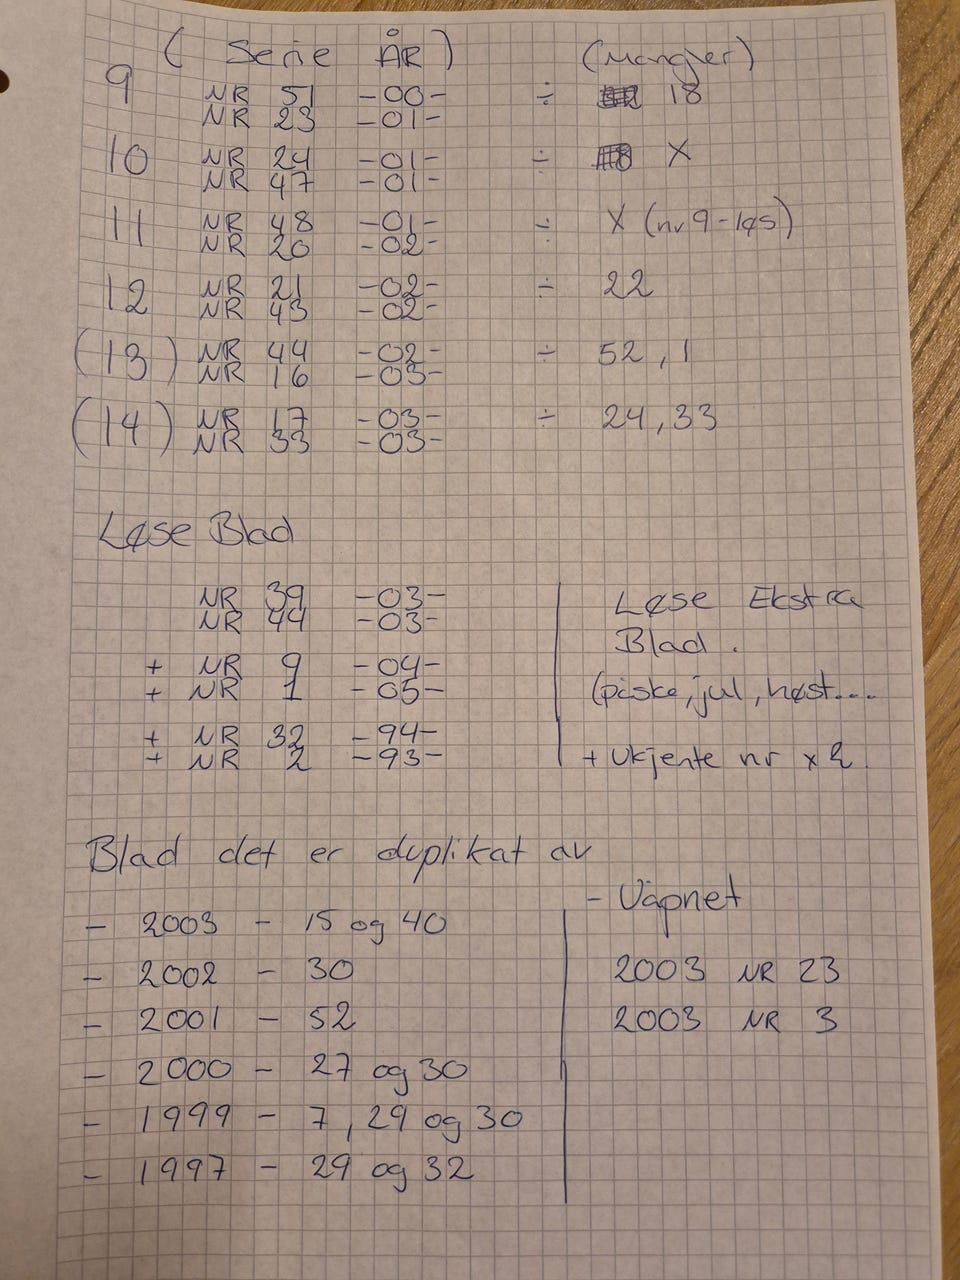 ( Serie ÅR ) (Mangler)
9 NR 51 -00- ÷ 18
NR 23 -01-
10 NR 24 -01- ÷ X
NR 47 -01-
11 NR 48 -01- ÷ X (nr 9-løs)
NR 20 -02-
12 NR 21 -02- ÷ 22
NR 43 -02-
(13) NR 44 -02- ÷ 52, 1
NR 16 -03-
(14) NR 17 -03- ÷ 24, 33
NR 33 -03-
Løse Blad
NR 39 -03-
NR 44 -03-
+ NR 9 -04-
+ NR 1 -05-
+ NR 32 -94-
+ NR 2 -93-
Løse Ekstra
Blad.
(påske, jul, høst....
+ Ukjente nr x 2.
Blad det er duplikat av
- 2003 - 15 og 40
- 2002 - 30
- 2001 - 52
- 2000 - 27 og 30
- 1999 - 7, 29 og 30
- 1997 - 29 og 32
- Uåpnet
2003 NR 23
2003 NR 3